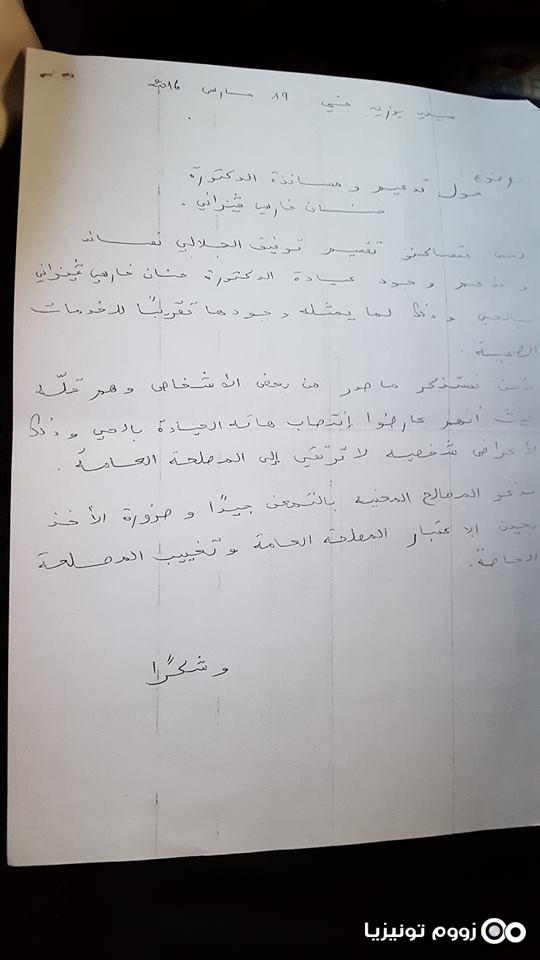 سيدي بوزيد في 19 مارس 2016
موضوع
حول تدعيم و مساندة الدكتورة
حنان فارسي ڨيزاني.
نحن متساكنو تقسيم توفيق الجلالي نساند
و ندعم وجود عيادة الدكتورة حنان فارسي ڨيزاني
بالحي و ذلك لما يمثله وجودها تقريبًا للخدمات
الطبية.
نحن نستنكر ما صدر من بعض الأشخاص وهم قلّه
حيث أنهم عارضوا إنتصاب هاته العيادة بالحي و ذلك
لأغراض شخصيه لا ترتقي إلى المصلحة العامة.
ندعو المصالح المعنيه بالتمعن جيدًا و ضرورة الأخذ
بعين الإعتبار المصلحة العامة و تغييب المصلحة
الخاصة.
و شكرًا
زووم تونيزيا